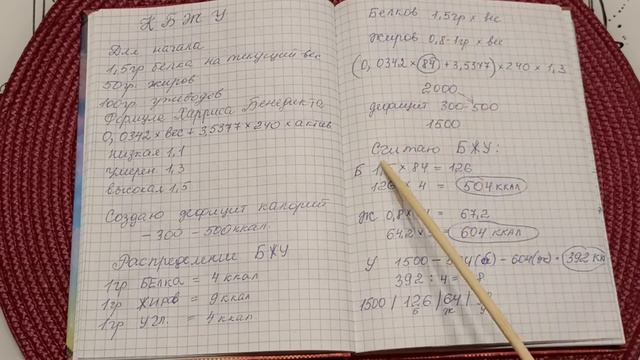 К Б Ж У
Для начала
1,5гр белка на текущий вес
50гр. жиров
100гр углеводов
Формула Харриса Бенедикта
0,0342 × вес + 3,5377 × 240 × актив
низкая 1,1
умерен 1,3
высокая 1,5
Создаю дефицит калорий
- 300 - 500 ккал.
Распределение БЖУ
1гр БЕЛКА = 4 ккал
1гр ЖИРОВ = 9 ккал
1гр УГЛ. = 4 ккал
Белков 1,5гр × вес
Жиров 0,8-1гр × вес
(0,0342 × 84 + 3,5377) × 240 × 1,3
2000
дефицит 300-500
1500
Считаю БЖУ:
Б × 84 = 126
126 × 4 = 504 ккал
Ж 0,8 × = 67,2
= 604 ккал
У 1500 - (б) - 604(ж) = 392
392 : 4 =
1500 / 126 / 64 /
Б Ж У